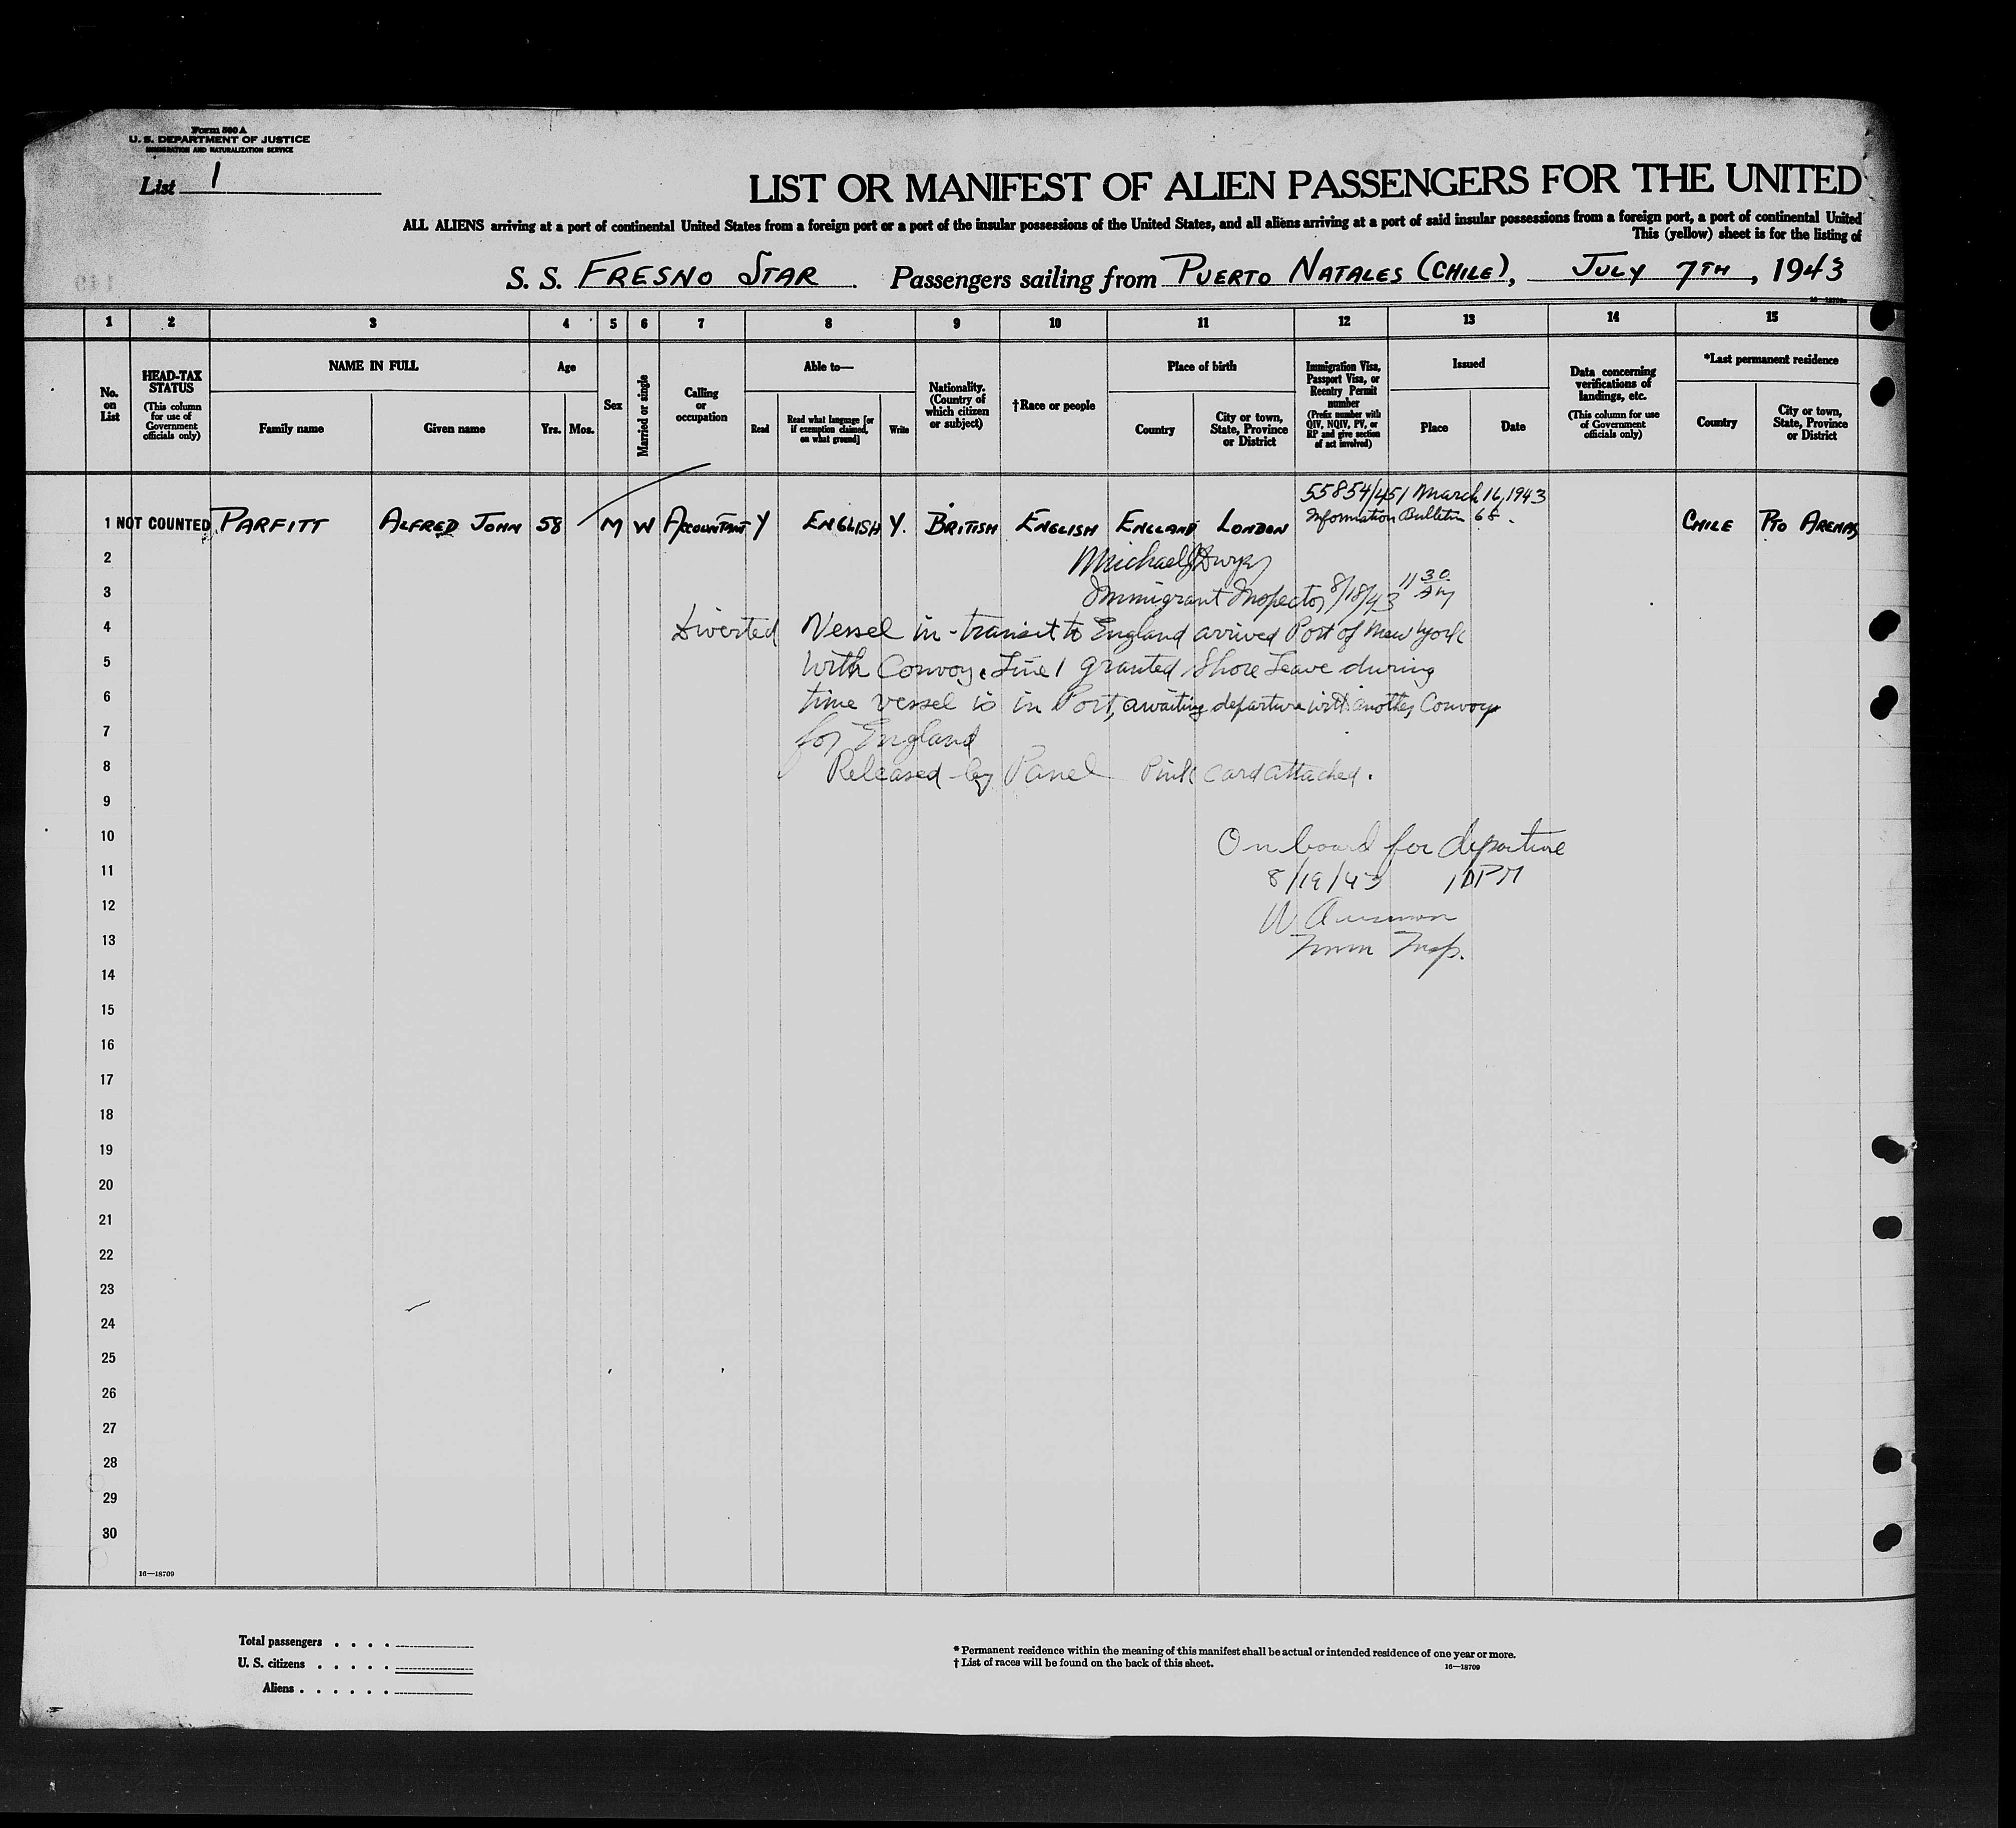 Form 500 A
U. S. DEPARTMENT OF JUSTICE
IMMIGRATION AND NATURALIZATION SERVICE
List 1
LIST OR MANIFEST OF ALIEN PASSENGERS FOR THE UNITED
ALL ALIENS arriving at a port of continental United States from a foreign port or a port of the insular possessions of the United States, and all aliens arriving at a port of said insular possessions from a foreign port, a port of continental United
This (yellow) sheet is for the listing of
S. S. FRESNO STAR. Passengers sailing from PUERTO NATALES (CHILE), JULY 7TH, 1943
16—18709
1 2 3 4 5 6 7 8 9 10 11 12 13 14 15
No. on List
HEAD-TAX STATUS (This column for use of Government officials only)
NAME IN FULL
Family name Given name
Age
Yrs. Mos.
Sex
Married or single
Calling or occupation
Able to—
Read Read what language [or if exemption claimed, on what ground] Write
Nationality. (Country of which citizen or subject)
†Race or people
Place of birth
Country City or town, State, Province or District
Immigration Visa, Passport Visa, or Reentry Permit number (Prefix number with QIV, NQIV, PV, or RP and give section of act involved)
Issued
Place Date
Data concerning verifications of landings, etc. (This column for use of Government officials only)
*Last permanent residence
Country City or town, State, Province or District
55854/451 March 16, 1943
Information Bulletin 68.
1 NOT COUNTED PARFITT ALFRED JOHN 58 M W ACCOUNTANT Y ENGLISH Y. BRITISH ENGLISH ENGLAND LONDON CHILE PTO ARENAS
2 Michael J Dwyer
3 Immigrant Inspector 8/18/43 11 30 AM
4 Diverted Vessel in-transit to England arrived Port of New York
5 with Convoy. Line 1 granted Shore Leave during
6 time vessel is in Port, awaiting departure with another Convoy
7 for England
8 Released by Panel Pink card attached.
9
10 On board for departure
11 8/19/43 1 PM
12 W
13 Imm Insp.
14
15
16
17
18
19
20
21
22
23
24
25
26
27
28
29
30
16—18709
Total passengers . . . .
U. S. citizens . . . . .
Aliens . . . . . .
* Permanent residence within the meaning of this manifest shall be actual or intended residence of one year or more.
† List of races will be found on the back of this sheet.
16—18709